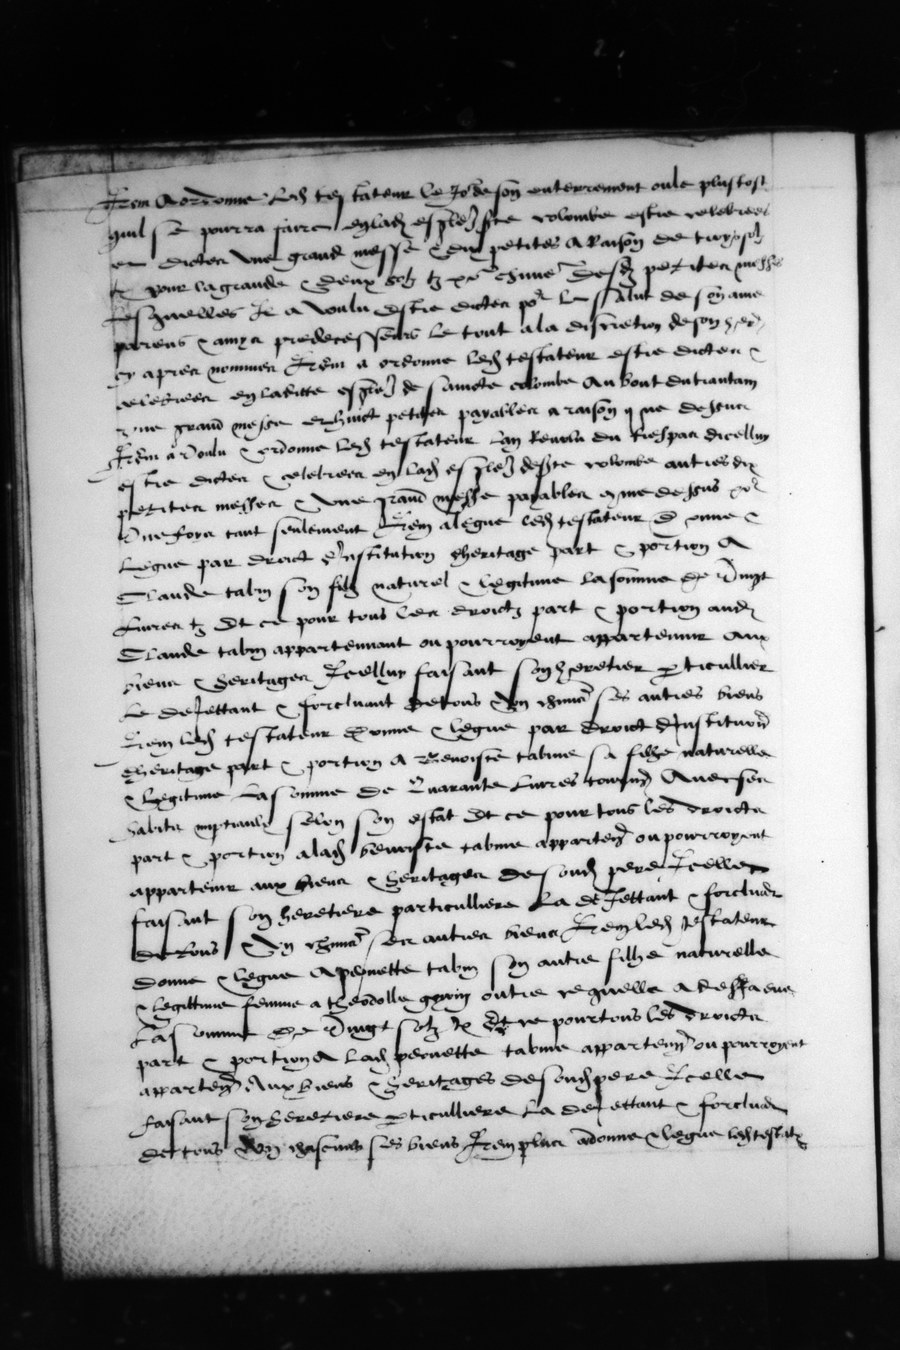 Item A ordonne led testateur le Jor de son enterrement ou le plustost
quil se pourra faire en lad esglize ste colombe estre celebrees
et dictes une grand messe &
pour la grande & deux solz tz po chune desd petites messes
lesquelles Il a voulu estre dictes pr le Salut de son ame
parens & amys predecesseurs le tout a la discretion de son her
cy apres nommes Item a ordonne led testateur estre dictes &
celebrees en ladicte esglize de saincte colombe Au bout du trantain
une grand messe et huict petites payables a raison que dessus
Item a voulu & ordonne led testateur Lan Revolu du trespas dicelluy
estre dictes & celebrees en lad esglize de ste colombe autres dix
petites messes & une grand messe payables come dessus por
une foys tant seulement Item a legue led testateur & donne &
Legue par droict dInstitution dheritage part & portion A
Claude tabin son filz naturel & legitime la somme de vingt
Livres tz Et ce pour tous les droictz part & portion aud
Claude tabin appartennant ou pourroyent appartenir Aux
biens & heritages Icelluy faisant son heretier particullier
Le dejettant & forcluant de tous Ung chuns ses autres biens
Item led testateur donne & legue par droict dInstitution
dheritage part & portion A Benoiste tabine sa filhe naturelle
& legitime La somme de Quarante Livres tournz Avec ses
habitz nuptiaulx selon son estat Et ce pour tous les droictz
part & portion a lad benoiste tabine appartenz ou pourroyent
appartenir aux biens & heritages de sond pere Icelle
faisant son heretiere particulliere La dejettant & forcluant
de tous Ung chuns ses autres biens Item led testateur
donne & legue A pernette tabin son autre filhe naturelle
& legittime femme a theodolle outre ce quelle a
La somme de vingt solz tz Et ce pour tous les droictz
part & portion A lad pernette tabine appartenz ou pourroyent
appartenz Aux biens & heritages de sond pere Icelle
faisant son heretiere particulliere La dejettant & forcluant
de tous Ung chascuns ses biens Item plus a donne & legue led testatr